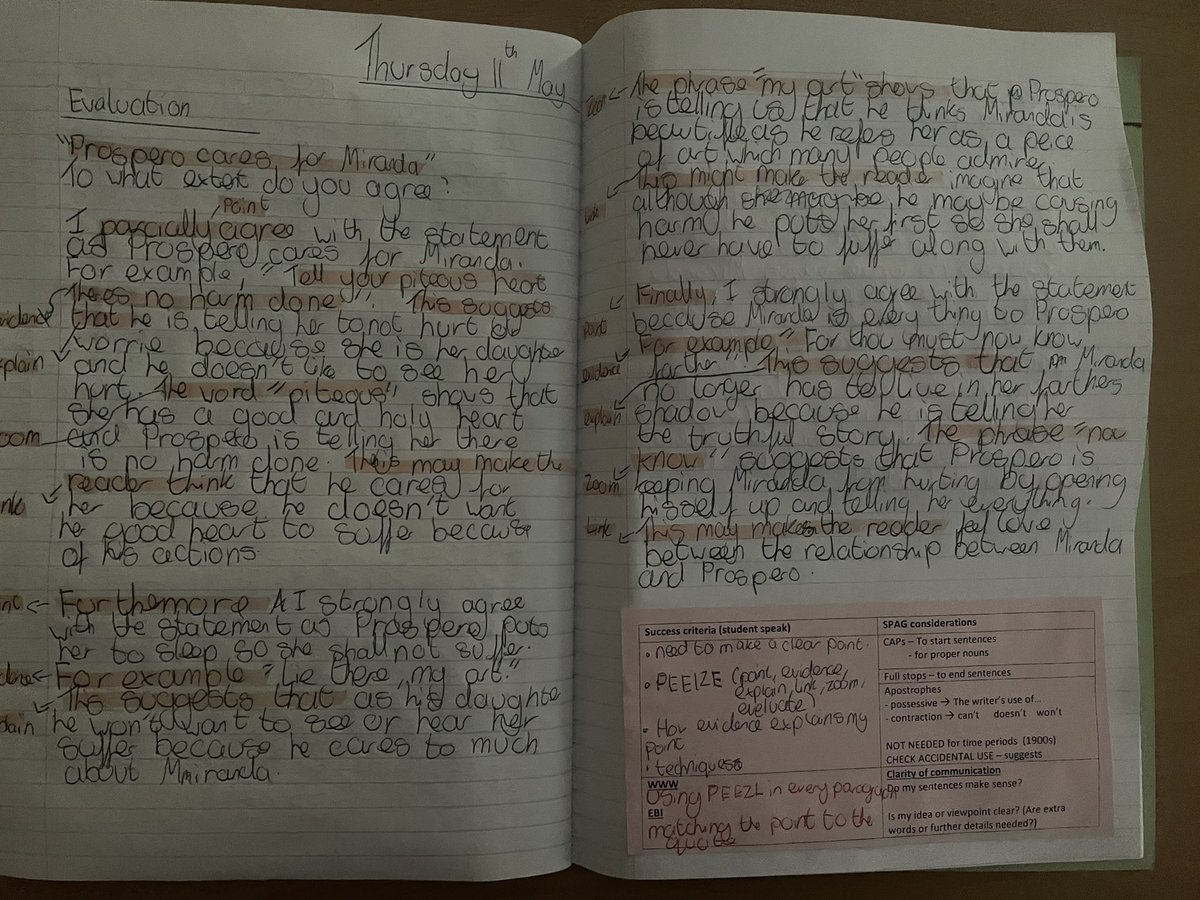 Thursday 11th May
Evaluation
"Prospero cares for Miranda"
To what extet do you agree?
Point
I parcially agree with the statement
as Prospero cares for Miranda.
For example, "Tell your piteous heart
evidence
Theres no harm done". This suggests
that he is telling her to not hurt or
explain
worrie because she is her daughter
and he doesn't like to see her
hurt. The word "piteous" shows that
she has a good and holy heart
zoom
and Prospero is telling her there
is no harm done. This may make the
link
reader think that he cares for
her because he doesn't want
her good heart to suffer because
of his actions.
Point
Furthemore I strongly agree
with the statement as Prospero puts
her to sleep so she shall not suffer.
For example "Lie there, my art."
This suggests that as his daughter
explain
he won't want to see or hear her
suffer because he cares to much
about Miranda.
zoom
The phrase "my art" shows that Prospero
is telling us that he thinks Miranda is
beautifle as he refers her as a peice
of art which many people admire.
This might make the reader imagine that
link
although he may be causing
harm, he puts her first so she shall
never have to suffer along with them.
Finally, I strongly agree with the statement
point
because Miranda is every thing to Prospero
For example "For thou must now know
evidence
farther". This suggests that Miranda
explain
no longer has to live in her farthers
shadow because he is telling her
the truthful story. The phrase "now
know" suggests that Prospero is
zoom
keeping Miranda from hurting by opening
hisself up and telling her everything.
link
This may makes the reader feel love
between the relationship between Miranda
and Prospero.
Success criteria (student speak)
• need to make a clear point.
• PEEIZE (point, evidence,
explain, link, zoom,
evaluate)
• How evidence explains my
point
• techniques
WWW
Using PEEZL in every paragraph
EBI
matching the point to the
quote
SPAG considerations
CAPs – To start sentences
- for proper nouns
Full stops – to end sentences
Apostrophes
- possessive → The writer's use of…
- contraction → can't doesn't won't
NOT NEEDED for time periods (1900s)
CHECK ACCIDENTAL USE – suggests
Clarity of communication
Do my sentences make sense?
Is my idea or viewpoint clear? (Are extra
words or further details needed?)